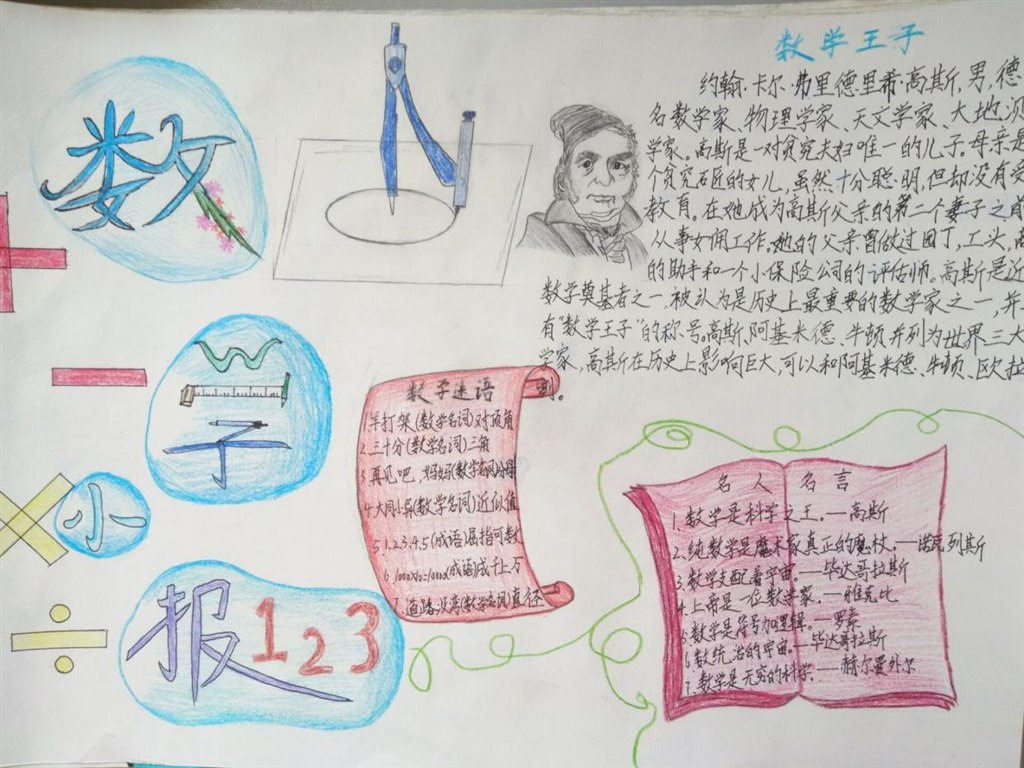 数学小报
123
数学王子
约翰·卡尔·弗里德里希·高斯,男,德
名数学家、物理学家、天文学家、大地
学家。高斯是一对贫穷夫妇唯一的儿子。母亲是
个贫穷石匠的女儿,虽然十分聪明,但却没有受
教育。在她成为高斯父亲的第二个妻子之
从事女佣工作。她的父亲曾做过园丁,工头,
的助手和一个小保险公司的评估师。高斯是近
数学奠基者之一,被认为是历史上最重要的数学家之一,并
有"数学王子"的称号。高斯、阿基米德、牛顿并列为世界三大
学家,高斯在历史上影响巨大,可以和阿基米德、牛顿、欧拉
列。
数学迷语
1.羊打架(数学名词)对顶角
2.三十分(数学名词)三角
3.再见吧,妈妈(数学名词)分母
4.大同小异(数学名词)近似值
5.1.2.3.4.5(成语)屈指可数
6. (成语)成千上万
7.道路没弯(数学名词)直径
名人名言
1.数学是科学之王。—高斯
2.纯数学是魔术家真正的魔杖。—诺瓦列斯
3.数学支配着宇宙。—毕达哥拉斯
4.上帝是一位数学家。—雅克比
5.数学是符号加逻辑。—罗素
6.数统治的宇宙。—毕达哥拉斯
7.数学是无穷的科学。—赫尔曼外尔